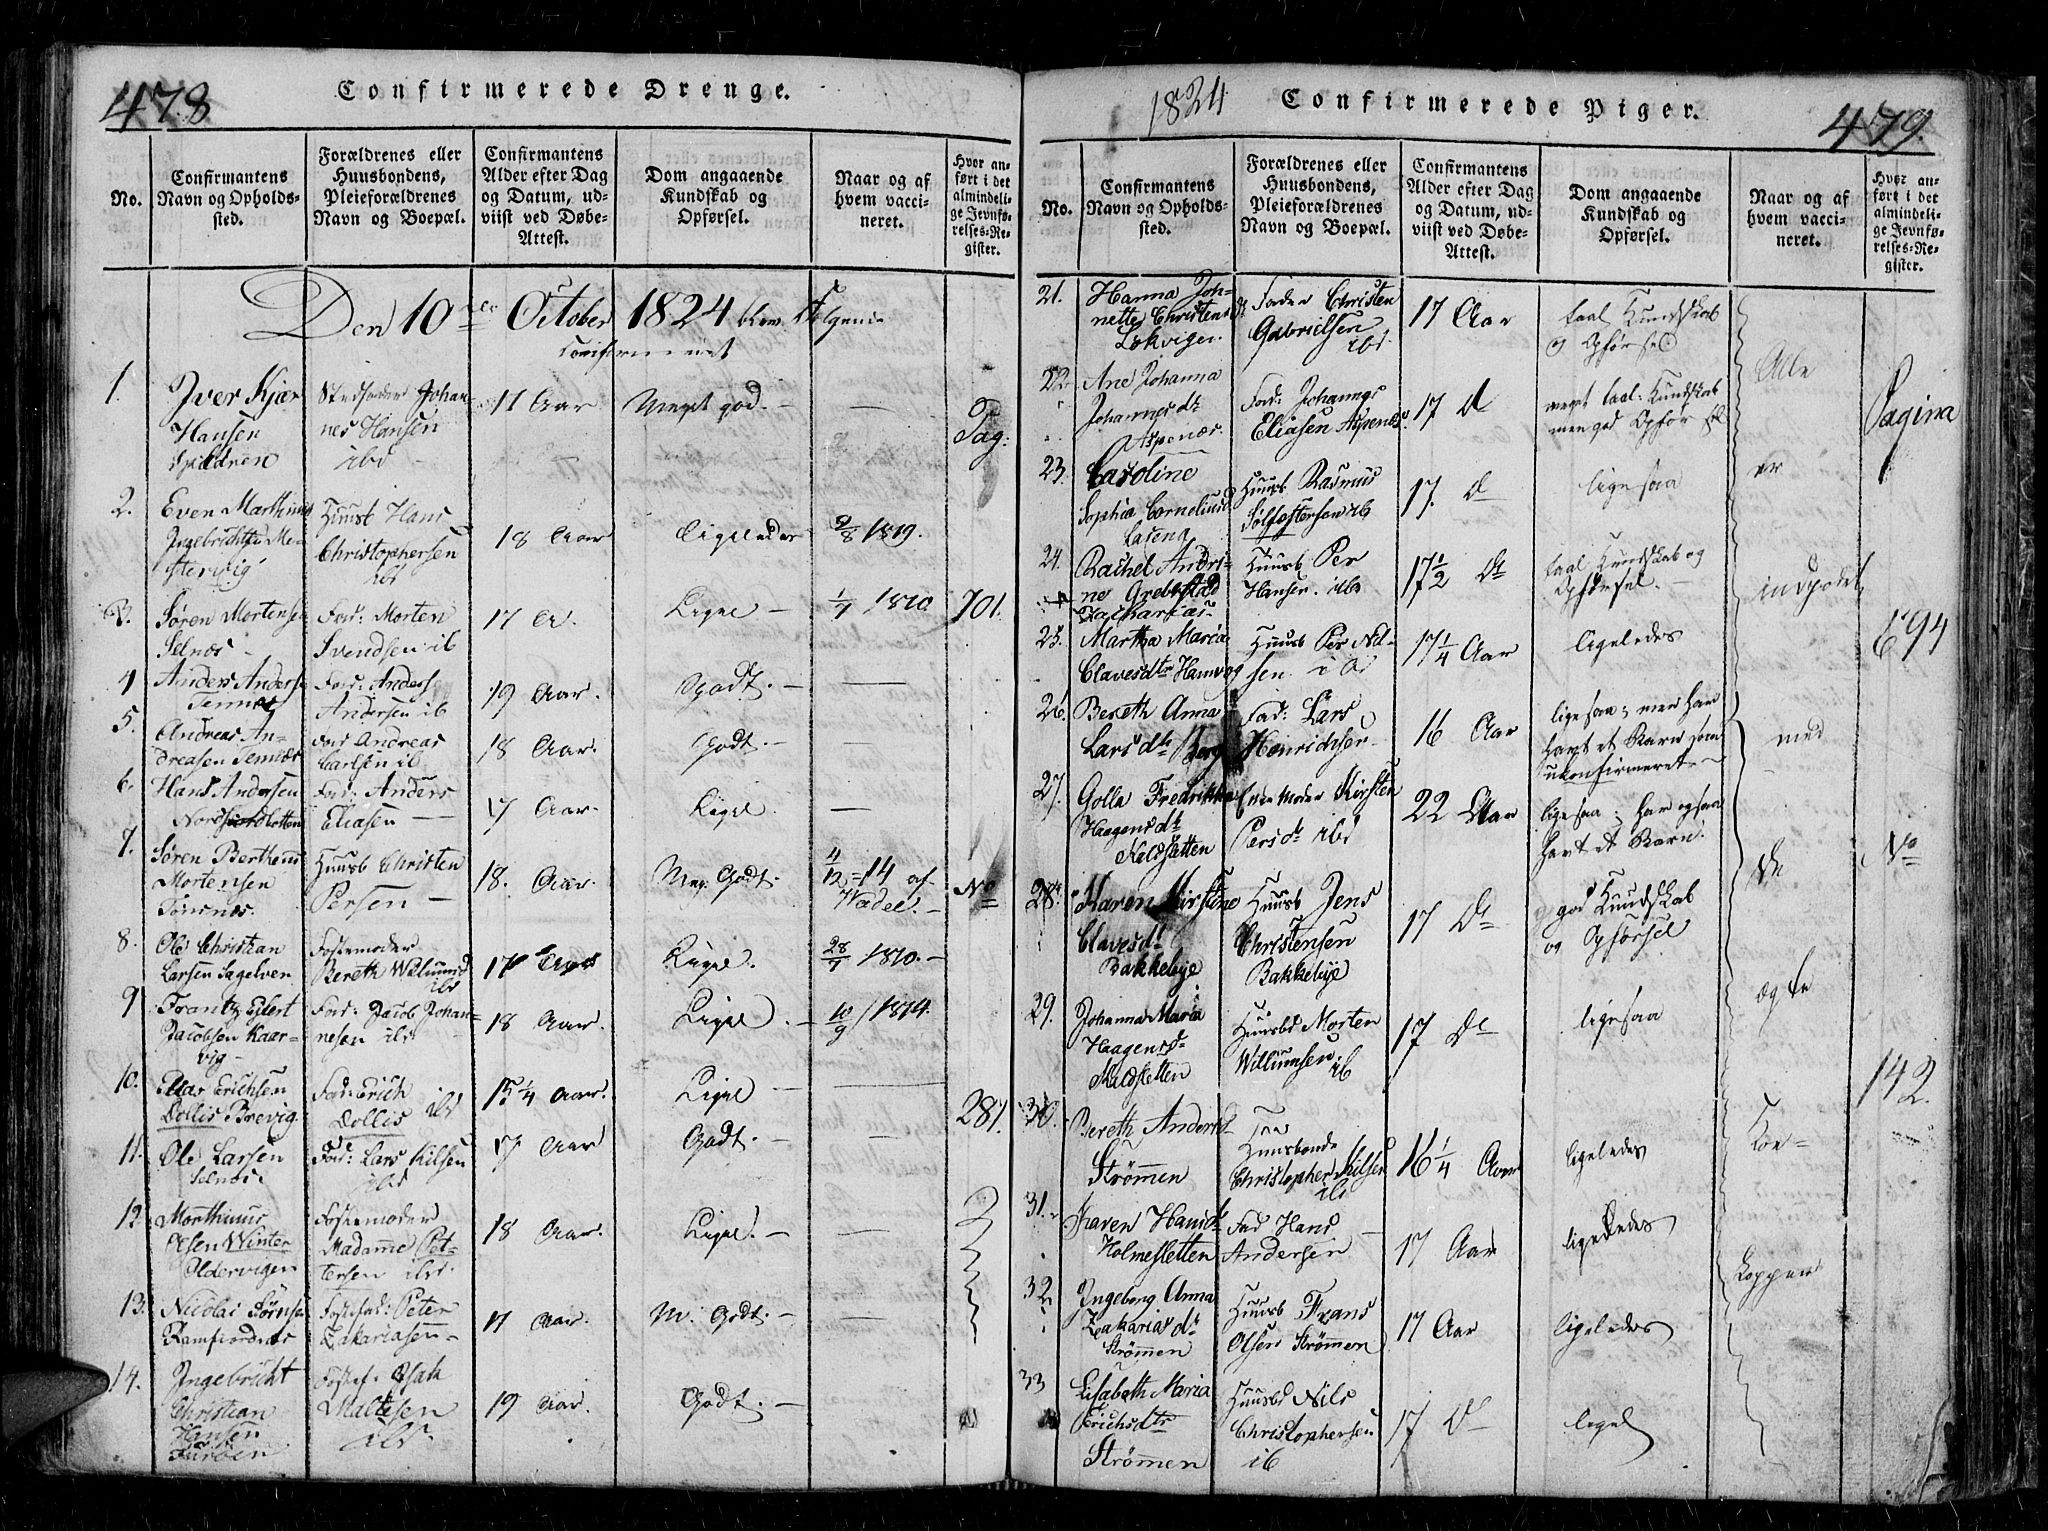 478
Confirmerede Drenge.
No.
Confirmantens
Navn og Opholds-
sted.
Forældrenes eller
Huusbondens,
Pleieforældrenes
Navn og Boepæl.
Confirmantens
Alder efter Dag
og Datum, ud-
viist ved Døbe-
Attest.
Dom angaaende
Kundskab og
Opførsel.
Naar og af
hvem vacci-
neret.
Hvor an-
ført i det
almindeli-
ge Jevnfø-
relses-Re-
gister.
Den 10de October 1824 blev Følgende
confirmeret
1.
Iver Kjær
Hansen
Spildren
Stedfader Johan-
nes Hansen
ibd
Aar
Meget god.
Pag:
2.
Even Marthinus
Ingebrichtsen
Huusb Hans
Christophersen
ibd
18 Aar
Ligeledes
2/8 1819.
3.
Søren Mortensen
Selnæs
Fad: Morten
Svendsen ib
17 A.
Ligel
1/7 1810
701.
4
Anders Anders
Temnæs
Fad: Anders
Andersen ib
19 Aar.
Godt.
5.
Andreas An-
dreasen Temnæs
Fad Andreas
Carlsen ib
18 Aar.
Godt.
6.
Hans Andersen
Fad: Anders
Eliasen
17 Aar.
Ligel.
7.
Søren Berthens
Mortensen
Tønsnæs.
Huusb Christen
Persen
18. Aar.
Meg: Godt.
4/12 = 14 af
Wadel.
No
8.
Ole Christian
Larsen Sagelven
Fostermoder
Bereth Willumsd
ibd
17 Aar
Ligel.
28/7 1810.
9
Frantz Eilert
Jacobsen Kaar-
vig
Fad: Jacob Johan-
nesen ibd
18 Aar.
Ligel.
10/9 1814.
10.
Peder Erichsen
Dollis Brevig.
Fad: Erich
Dollis ibd
15 1/4 Aar.
Ligel
281.
11.
Ole Larsen
Selnæs.
Fad: Lars Nilsen
ibd
17 Aar
Godt.
12.
Morthinus
Olsen Winter
Oldervigen
Fostermoder
Madamme Pet-
tersen ibd.
18 Aar.
Ligel.
13.
Nicolai Sørnsen
Ramfiordnæs
Fosterfad: Peter
Zakariasen
17 Aar.
M: Godt.
14.
Ingebricht
Christian
Hansen
Fosterf. Isak
Maltesen
ibd.
19 Aar.
Godt.
1824
Confirmerede Piger.
479.
No.
Confirmantens
Navn og Opholds-
sted.
Forældrenes eller
Huusbondens,
Pleieforældrenes
Navn og Boepæl.
Confirmantens
Alder efter Dag
og Datum, ud-
viist ved Døbe-
Attest.
Dom angaaende
Kundskab og
Opførsel.
Naar og af
hvem vacci-
neret.
Hvor an-
ført i det
almindeli-
ge Jevnfø-
relses-Re-
gister.
21.
Hanna Joh-
nette Christensdt
Lökvigen
Fader Christen
Gabrielsen
ibd
17 Aar
taal Kundskab
og Opførsel
22
Ane Johanna
Johannesdtr
Aspenæs.
Fad: Johannes
Eliasen Aspenæs.
17 Do
meget taal: Kundskab
men god Opførsel
Alle
Pagina
23.
Caroline
Sophia Corneliusd
Huusb Rasmus
Sølfestersen ib
17. Do
ligesaa
er
24.
Rachel Andri-
ne Grebestad
Zacharias
Huusb Per
Hansen. ibd
17 1/2 Do
taal Kundskab og
Opførsel.
indpodet
25.
Martha Maria
Clavesdtr
Huusb Per Nil-
sen ibd
17 1/4 Aar
ligeledes
694
26.
Bereth Anna
Larsdtr Berg
Fad: Lars
Henrichsen
16 Aar
ligesaa; men har
havt et Barn som
ukonfirmeret
med
27.
Golla Fredrikka
Haagensdtr
Mildsletten
Enke Moder Kirsten
Persdtr ibd
22 Aar
ligesaa; har ogsaa
havt et Barn.
de
No
28.
Karen Kirstine
Clavesdtr
Bakkebye
Huusb Jens
Christensen
Bakkebye
17 Do
god Kundskab
og Opførsel
29.
Johanna Maria
Haagensd-
Mildsletten
Huusbd Morten
Willumsen
ib
17 Do
ligesaa
ægte
142.
30.
Bereth Andersd
Strømmen
Huusbonde
Christopher Nilsen
ibd
16 1/4 Aar
ligeledes
Koe-
31.
Maren Hansdt
Holmesletten
Fad Hans
Andersen
17 Aar
ligeledes
32
Ingeborg Anna
Zakariasdtr
Strømmen
Huusb Frans
Olsen Strømmen
17 Aar
ligeledes
kopper
33
Lisabeth Maria
Erichsdtr
Strømmen
Huusbd Nils
Christophersen
ib
17 Do
ligel